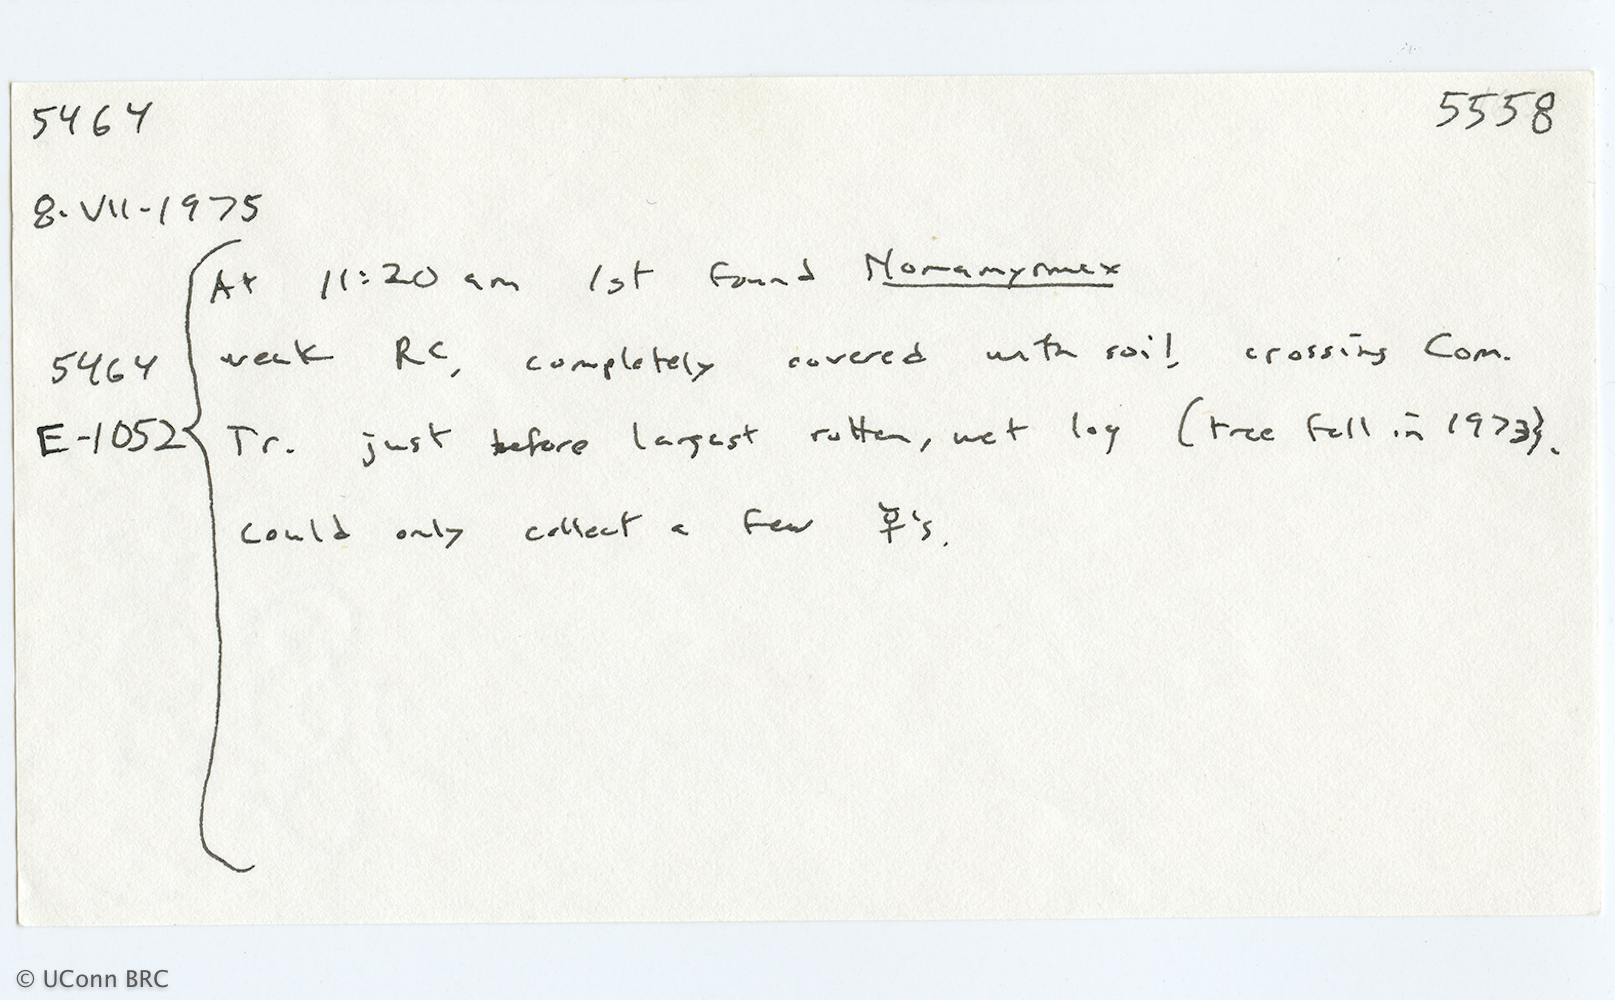 5464 5558
8-VII-1975
At 11:20 am 1st found Nomamyrmex
weak RC, completely covered with soil, crossing Com.
5464
E-1052 Tr. just before largest rotten, wet log (tree fell in 1973).
Could only collect a few ☿'s.
© UConn BRC